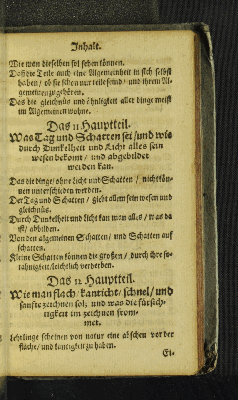 Inhalt.
Wie man dieselben sol sehen können.
Daß die Teile auch eine Allgemeinheit in sich selbst
haben / ob sie schon nur teile seind / und ihrem Al-
gemeinen zugehören.
Das die gleichnüs und ähnligkeit aller dinge meist
im Allgemeinen wohne.
Das 11 Hauptteil.
Was Tag und Schatten sei / und wie
durch Dunkelheit und Licht alles sein
wesen bekomt / und abgebildet
werden kan.
Das die dinge / ohne licht und Schatten / nicht kön-
nen unterschieden werden.
Der Tag und Schatten / giebt allem sein wesen und
gleichnüs.
Durch Dunkelheit und licht kan man alles / was da
ist / abbilden.
Von den algemeinen Schatten / und Schatten auf
schatten.
Kleine Schatten können die großen / durch ihre
leichtlich verderben.
Das 12 Hauptteil.
Wie man flach / kanticht / schnel / und
sanfte zeichnen sol; und was die fürsich-
tigkeit im zeichnen from-
met.
Lehrlinge scheinen von natur eine abscheu vor der
flächte / und kantigkeit zu haben.
Ei-